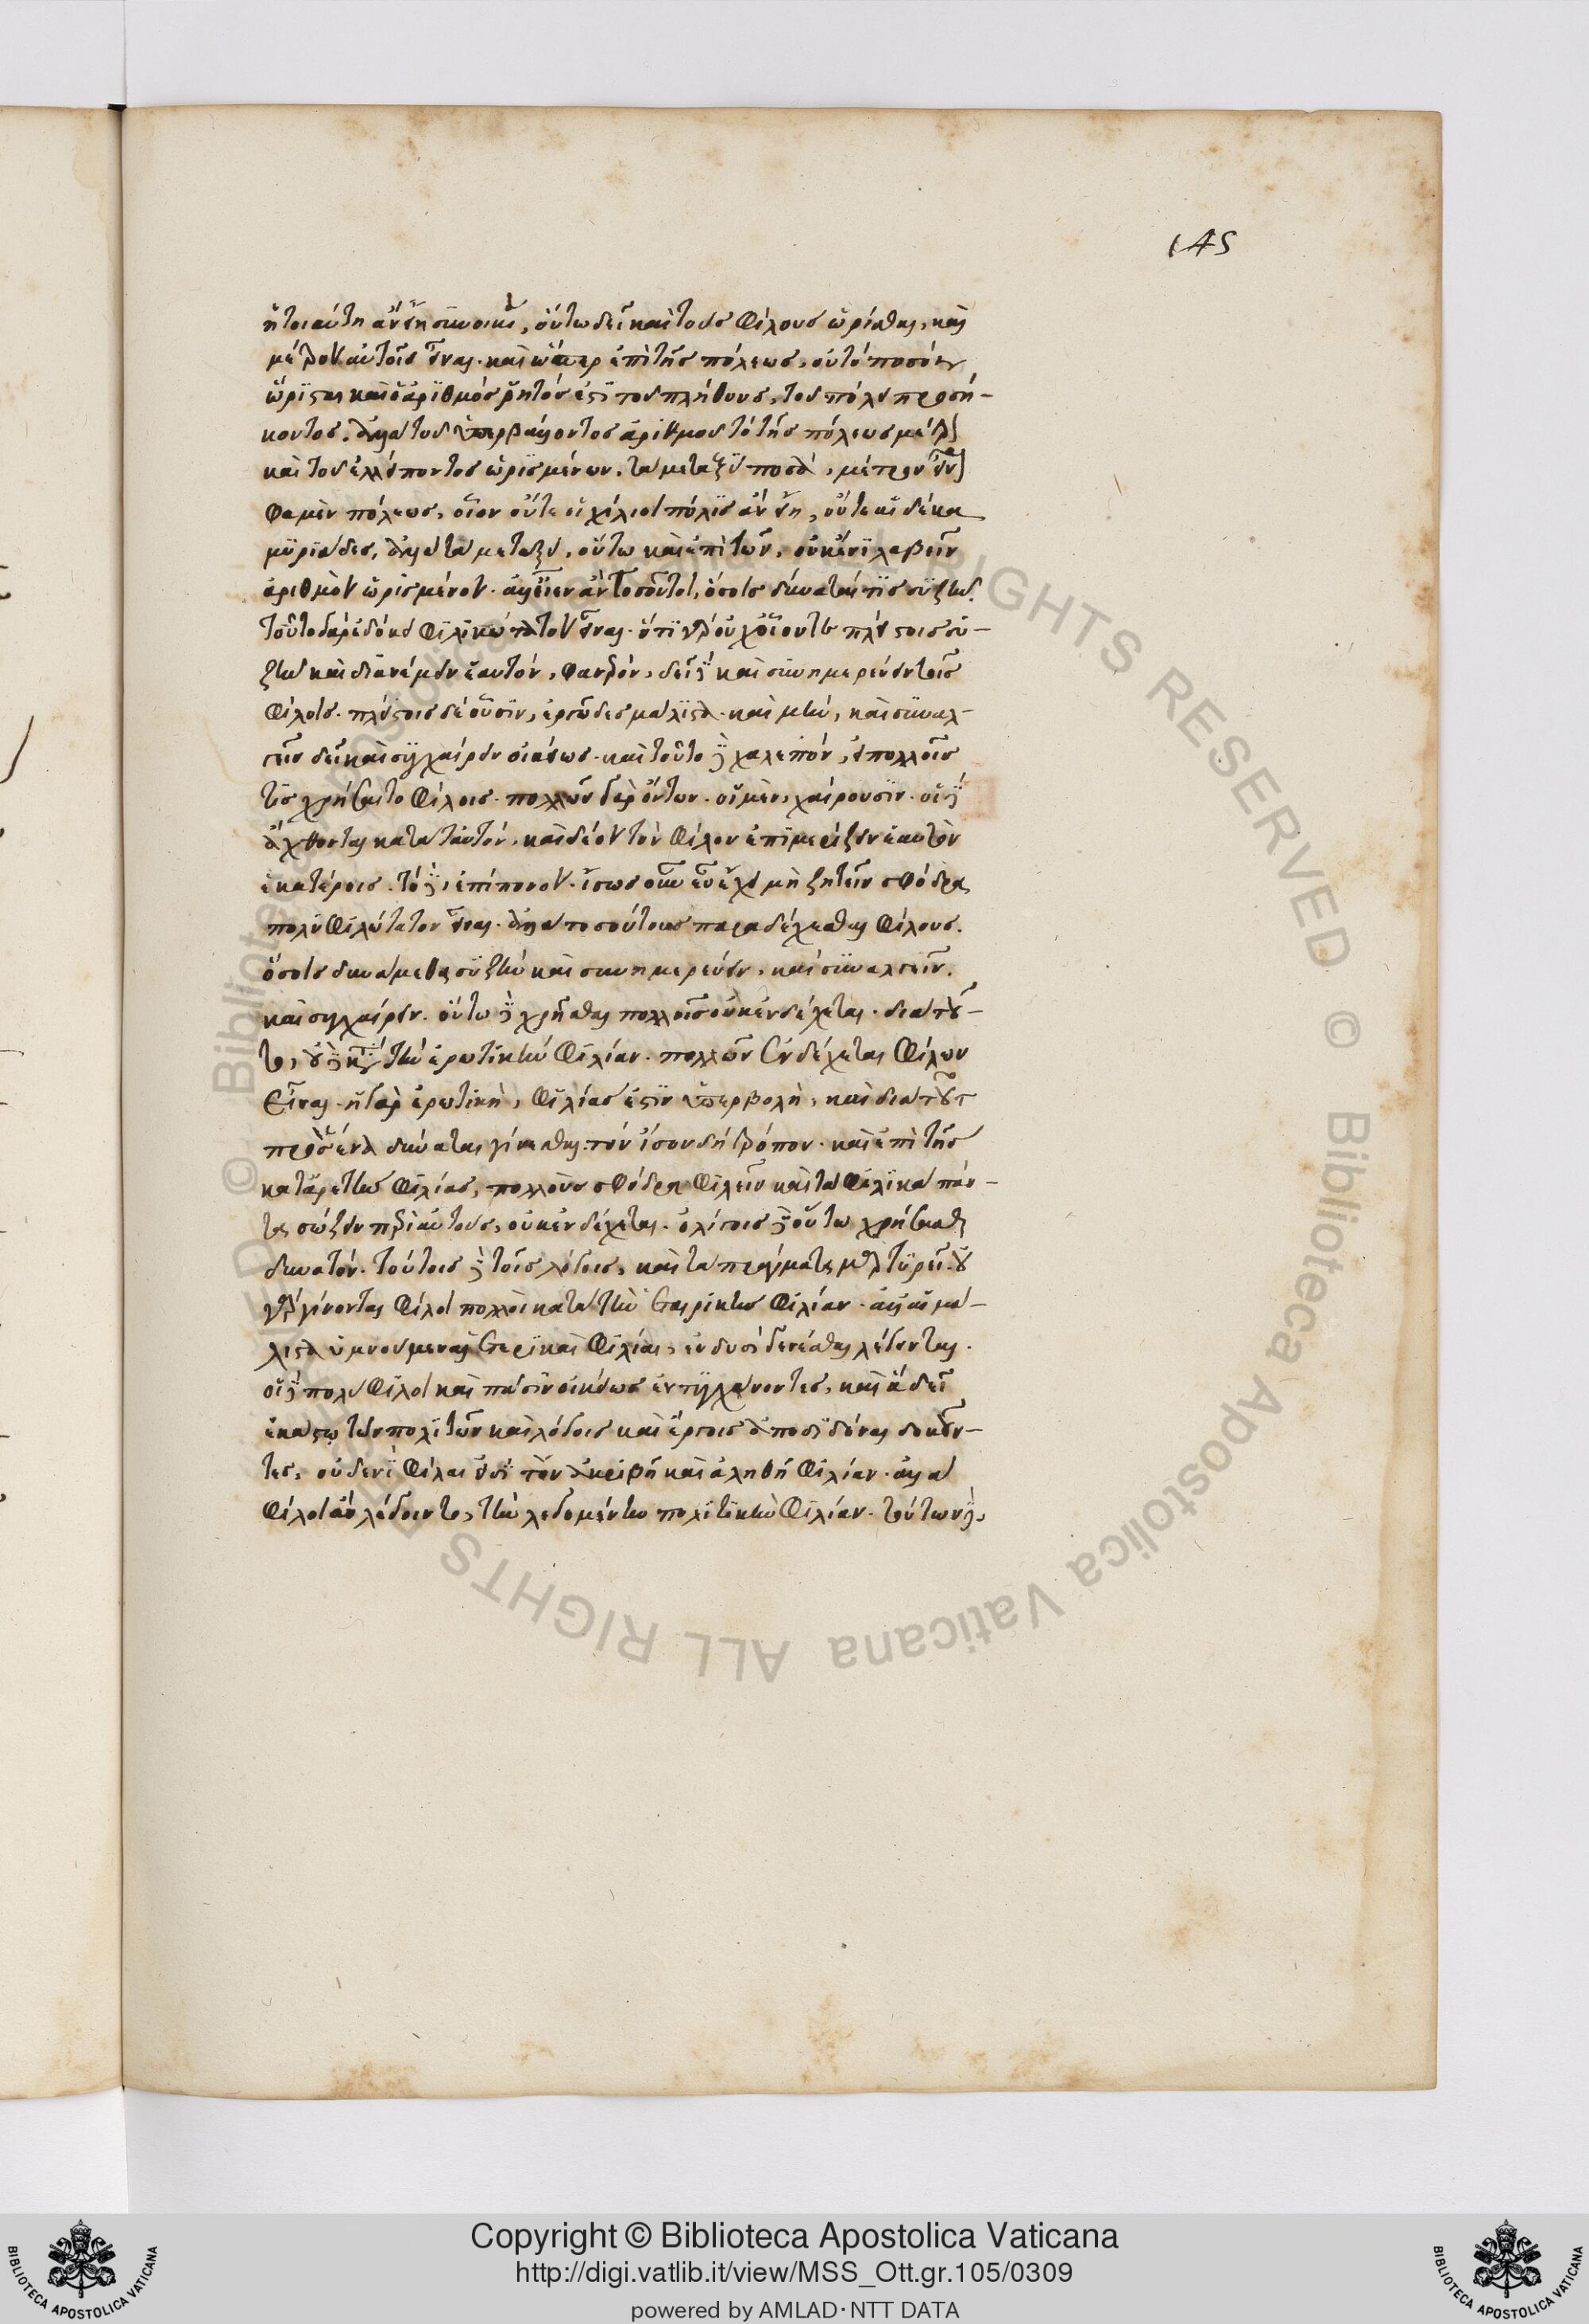 145
ἡ τοιαύτη ἂν εἴη συνοικία, οὕτω δεῖ καὶ τοὺς φίλους ὡρίσθαι, καὶ
μέτρον αὐτοῖς εἶναι. καὶ ὥσπερ ἐπὶ τῆς πόλεως, οὐ τὸ ποσὸν
ὥρισται καὶ ὁ ἀριθμὸς ῥητός ἐστι τοῦ πλήθους, τοῦ πόλει προσή-
κοντος. ἀλλὰ τοῦ ὑπερβάλλοντος ἀριθμοῦ τὸ τῆς πόλεως μέτρον
καὶ τοῦ ἐλλείποντος ὡρισμένων. τὰ μεταξὺ ποσὰ, μέτρον εἶναι
φαμὲν πόλεως, οἷον οὔτε οἱ χίλιοι πόλις ἂν εἴη, οὔτε αἱ δέκα
μυριάδες, ἀλλὰ τὰ μεταξύ. οὕτω καὶ ἐπὶ τῶν, οὐκ ἔνι λαβεῖν
ἀριθμὸν ὡρισμένον. ἀλλ' εἶεν ἂν τοσοῦτοι, ὅσοις δύναταί τις συζῆν.
τοῦτο γὰρ ἐδόκει φιλικώτατον εἶναι. ὅτι γὰρ οὐχ οἷόν τε πλείστοις συ-
ζῆν καὶ διανέμειν ἑαυτόν, φανερόν. δεῖ δὲ καὶ συνημερεύειν τοῖς
φίλοις. πλείστοις δὲ οὖσιν, ἐργῶδες μάλιστα. καὶ μὴν, καὶ συναλ-
γεῖν δεῖ καὶ συγχαίρειν οἰκείως. καὶ τοῦτο δὲ χαλεπόν, εἰ πολλοῖς
τὶς χρήσαιτο φίλοις. πολλῶν γὰρ ὄντων. οἱ μὲν, χαίρουσιν. οἱ δὲ
ἄχθονται κατὰ ταυτόν. καὶ δέον τὸν φίλον ἐπιμερίζειν ἑαυτὸν
ἑκατέροις. τὸ δὲ, ἐπίπονον. ἴσως οὖν εὖ ἔχει μὴ ζητεῖν σφόδρα
πολυφιλώτατον εἶναι. ἀλλὰ τοσούτους παραδέχεσθαι φίλους.
ὅσοις δυνάμεθα συζῆν καὶ συνημερεύειν, καὶ συναλγεῖν.
καὶ συγχαίρειν. οὕτω δὲ χρῆσθαι πολλοῖς οὐκ ἐνδέχεται. διὰ τοῦ-
το, οὐδὲ κατὰ τὴν ἐρωτικὴν φιλίαν. πολλῶν ἐνδέχεται φίλων
εἶναι. ἡ γὰρ ἐρωτικὴ, φιλίας ἐστὶν ὑπερβολὴ, καὶ διὰ τοῦτο
πρὸς ἕνα δύναται γίνεσθαι. τὸν ἴσον δὴ τρόπον. καὶ ἐπὶ τῆς
κατ' ἀρετὴν φιλίας, πολλοὺς σφόδρα φιλεῖν καὶ τὰ φιλικὰ πάν-
τα σώζειν περὶ αὐτοὺς, οὐκ ἐνδέχεται. ὀλίγοις δὲ οὕτω χρήσασθαι
δυνατόν. τούτοις δὲ τοῖς λόγοις, καὶ τὰ πράγματα μαρτυρεῖ. οὐ
γὰρ γίνονται φίλοι πολλοὶ κατὰ τὴν ἑταιρικὴν φιλίαν. ἀλλ' αἱ μά-
λιστα ὑμνούμεναι ἑταιρικαὶ φιλίαι, ἐν δυσὶ γενέσθαι λέγονται.
οἱ δὲ πολύφιλοι καὶ πᾶσιν οἰκείως ἐντυγχάνοντες, καὶ ἃ δεῖ
ἑκάστῳ τῶν πολιτῶν καὶ λόγοις καὶ ἔργοις ἀποδιδόναι δοκοῦν-
τες, οὐδενὶ φίλοι εἰσὶ τὴν ἀκριβῆ καὶ ἀληθῆ φιλίαν. ἀλλὰ
φίλοι ἂν λέγοιντο, τὴν λεγομένην πολιτικὴν φιλίαν. τούτων δὲ,
Copyright © Biblioteca Apostolica Vaticana
http://digi.vatlib.it/view/MSS_Ott.gr.105/0309
powered by AMLAD·NTT DATA